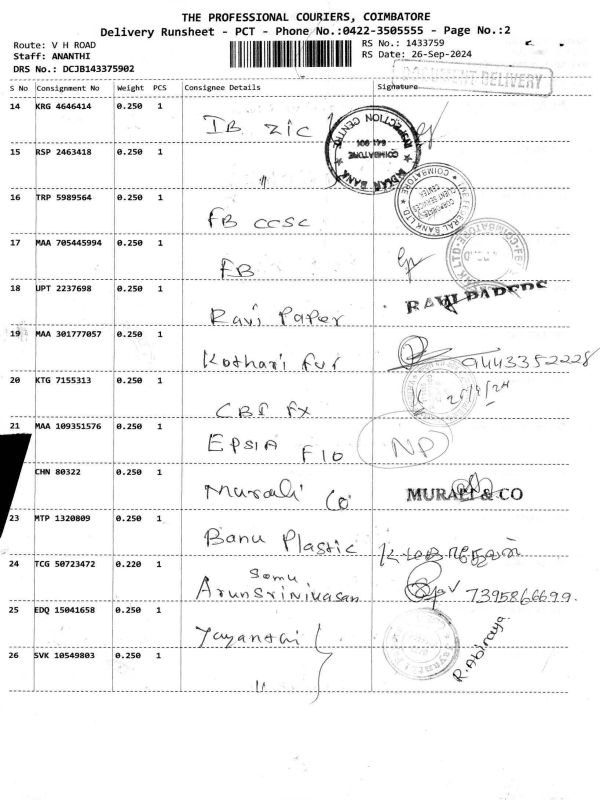 THE PROFESSIONAL COURIERS, COIMBATORE
Delivery Runsheet - PCT - Phone No.:0422-3505555 - Page No.:2
Route: V H ROAD RS No.: 1433759
Staff: ANANTHI RS Date: 26-Sep-2024
DRS No.: DCJB143375902
DOCUMENT DELIVERY
S No Consignment No Weight PCS Consignee Details Signature
14 KRG 4646414 0.250 1 IB ZIC
INDIAN BANK INSPECTION CENTRE COIMBATORE 641 001
15 RSP 2463418 0.250 1 "
16 TRP 5989564 0.250 1 FB CCSC
FEDERAL BANK LTD COIMBATORE
17 MAA 705445994 0.250 1 FB
18 UPT 2237698 0.250 1 Ravi Paper RAVI PAPERS
19 MAA 301777057 0.250 1 Kothari Fur 9443352228
20 KTG 7155313 0.250 1 CBI FX
21 MAA 109351576 0.250 1 EPSIA F10 NP
CHN 80322 0.250 1 Murali Co MURALI & CO
23 MTP 1320809 0.250 1 Banu Plastic
24 TCG 50723472 0.220 1 Somu ArunSrinivasan 7395866699
25 EDQ 15041658 0.250 1 Jayanthi R. Abiraya
26 SVK 10549803 0.250 1 "